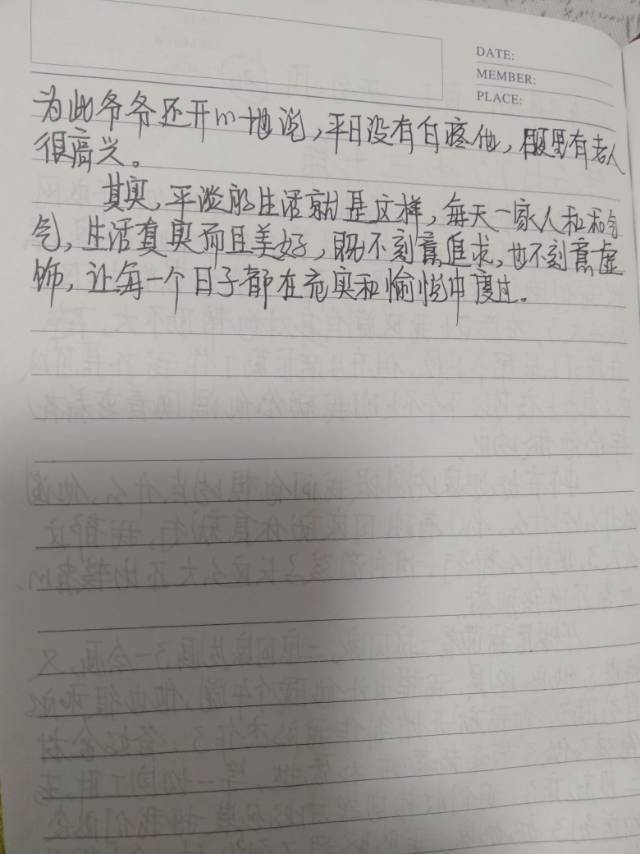 DATE:
MEMBER:
PLACE:
为此爷爷还开心地说，平日没有白疼他，眼里有老人
很高兴。
其实，平淡的生活就是这样，每天一家人和和气
气，生活真实而且美好，既不刻意追求，也不刻意虚
饰，让每一个日子都在充实和愉悦中度过。